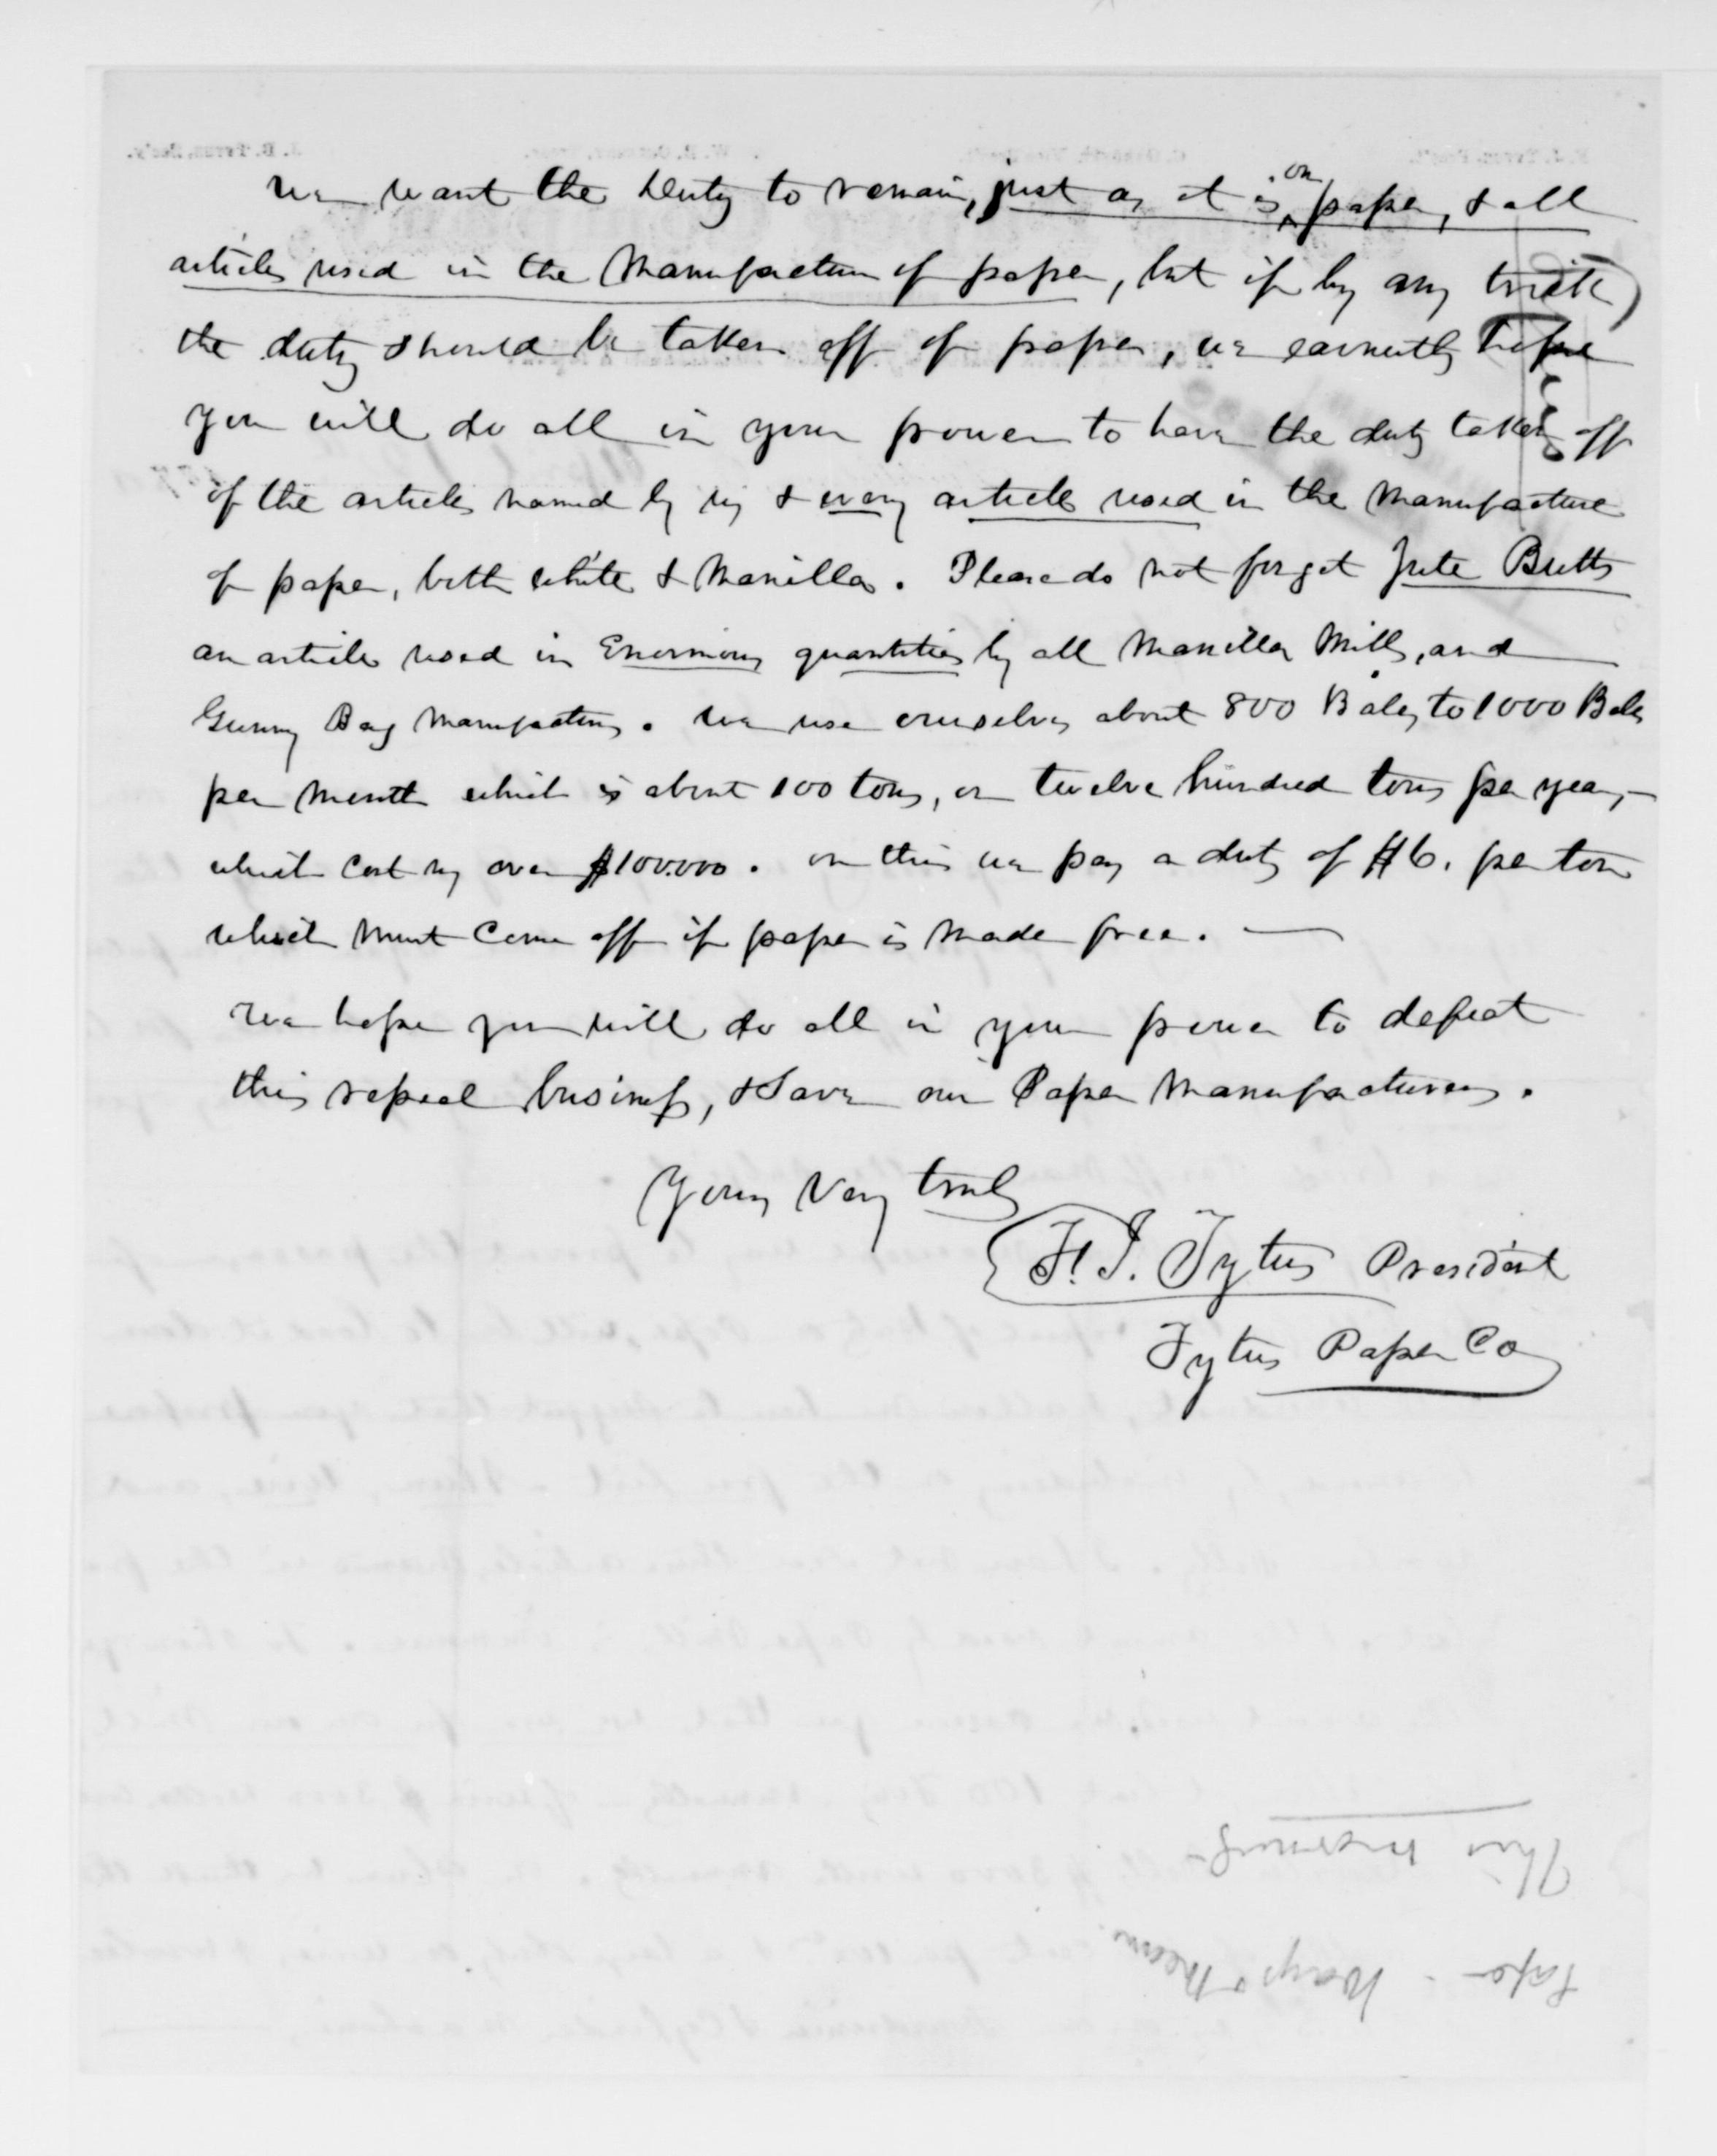 We want the Duty to remain, just as it is on paper, & all
articles used in the Manufacture of paper, but if by any trick
the duty should be taken off of paper, we earnestly hope
you will do all in your power to have the duty taken off
of the articles named by us & every article used in the Manufacture
of paper, both white & Manilla. Please do not forget Jute Butts
an article used in Enormous quantities by all Manilla Mills, and
Gunny Bag Manufactures. We use ourselves about 800 Bales to 1000 Bales
per Month which is about 100 tons, or twelve hundred tons per year,—
which cost us over $100.000. on this we pay a duty of $6. per ton
which must come off if paper is made free. —
We hope you will do all in your power to defeat
this repeal business, & Save our Paper Manufacturers.
Yours Very truly
F. J. Tytus President
Tytus Paper Co
Paper - Ways & Means
This morning -